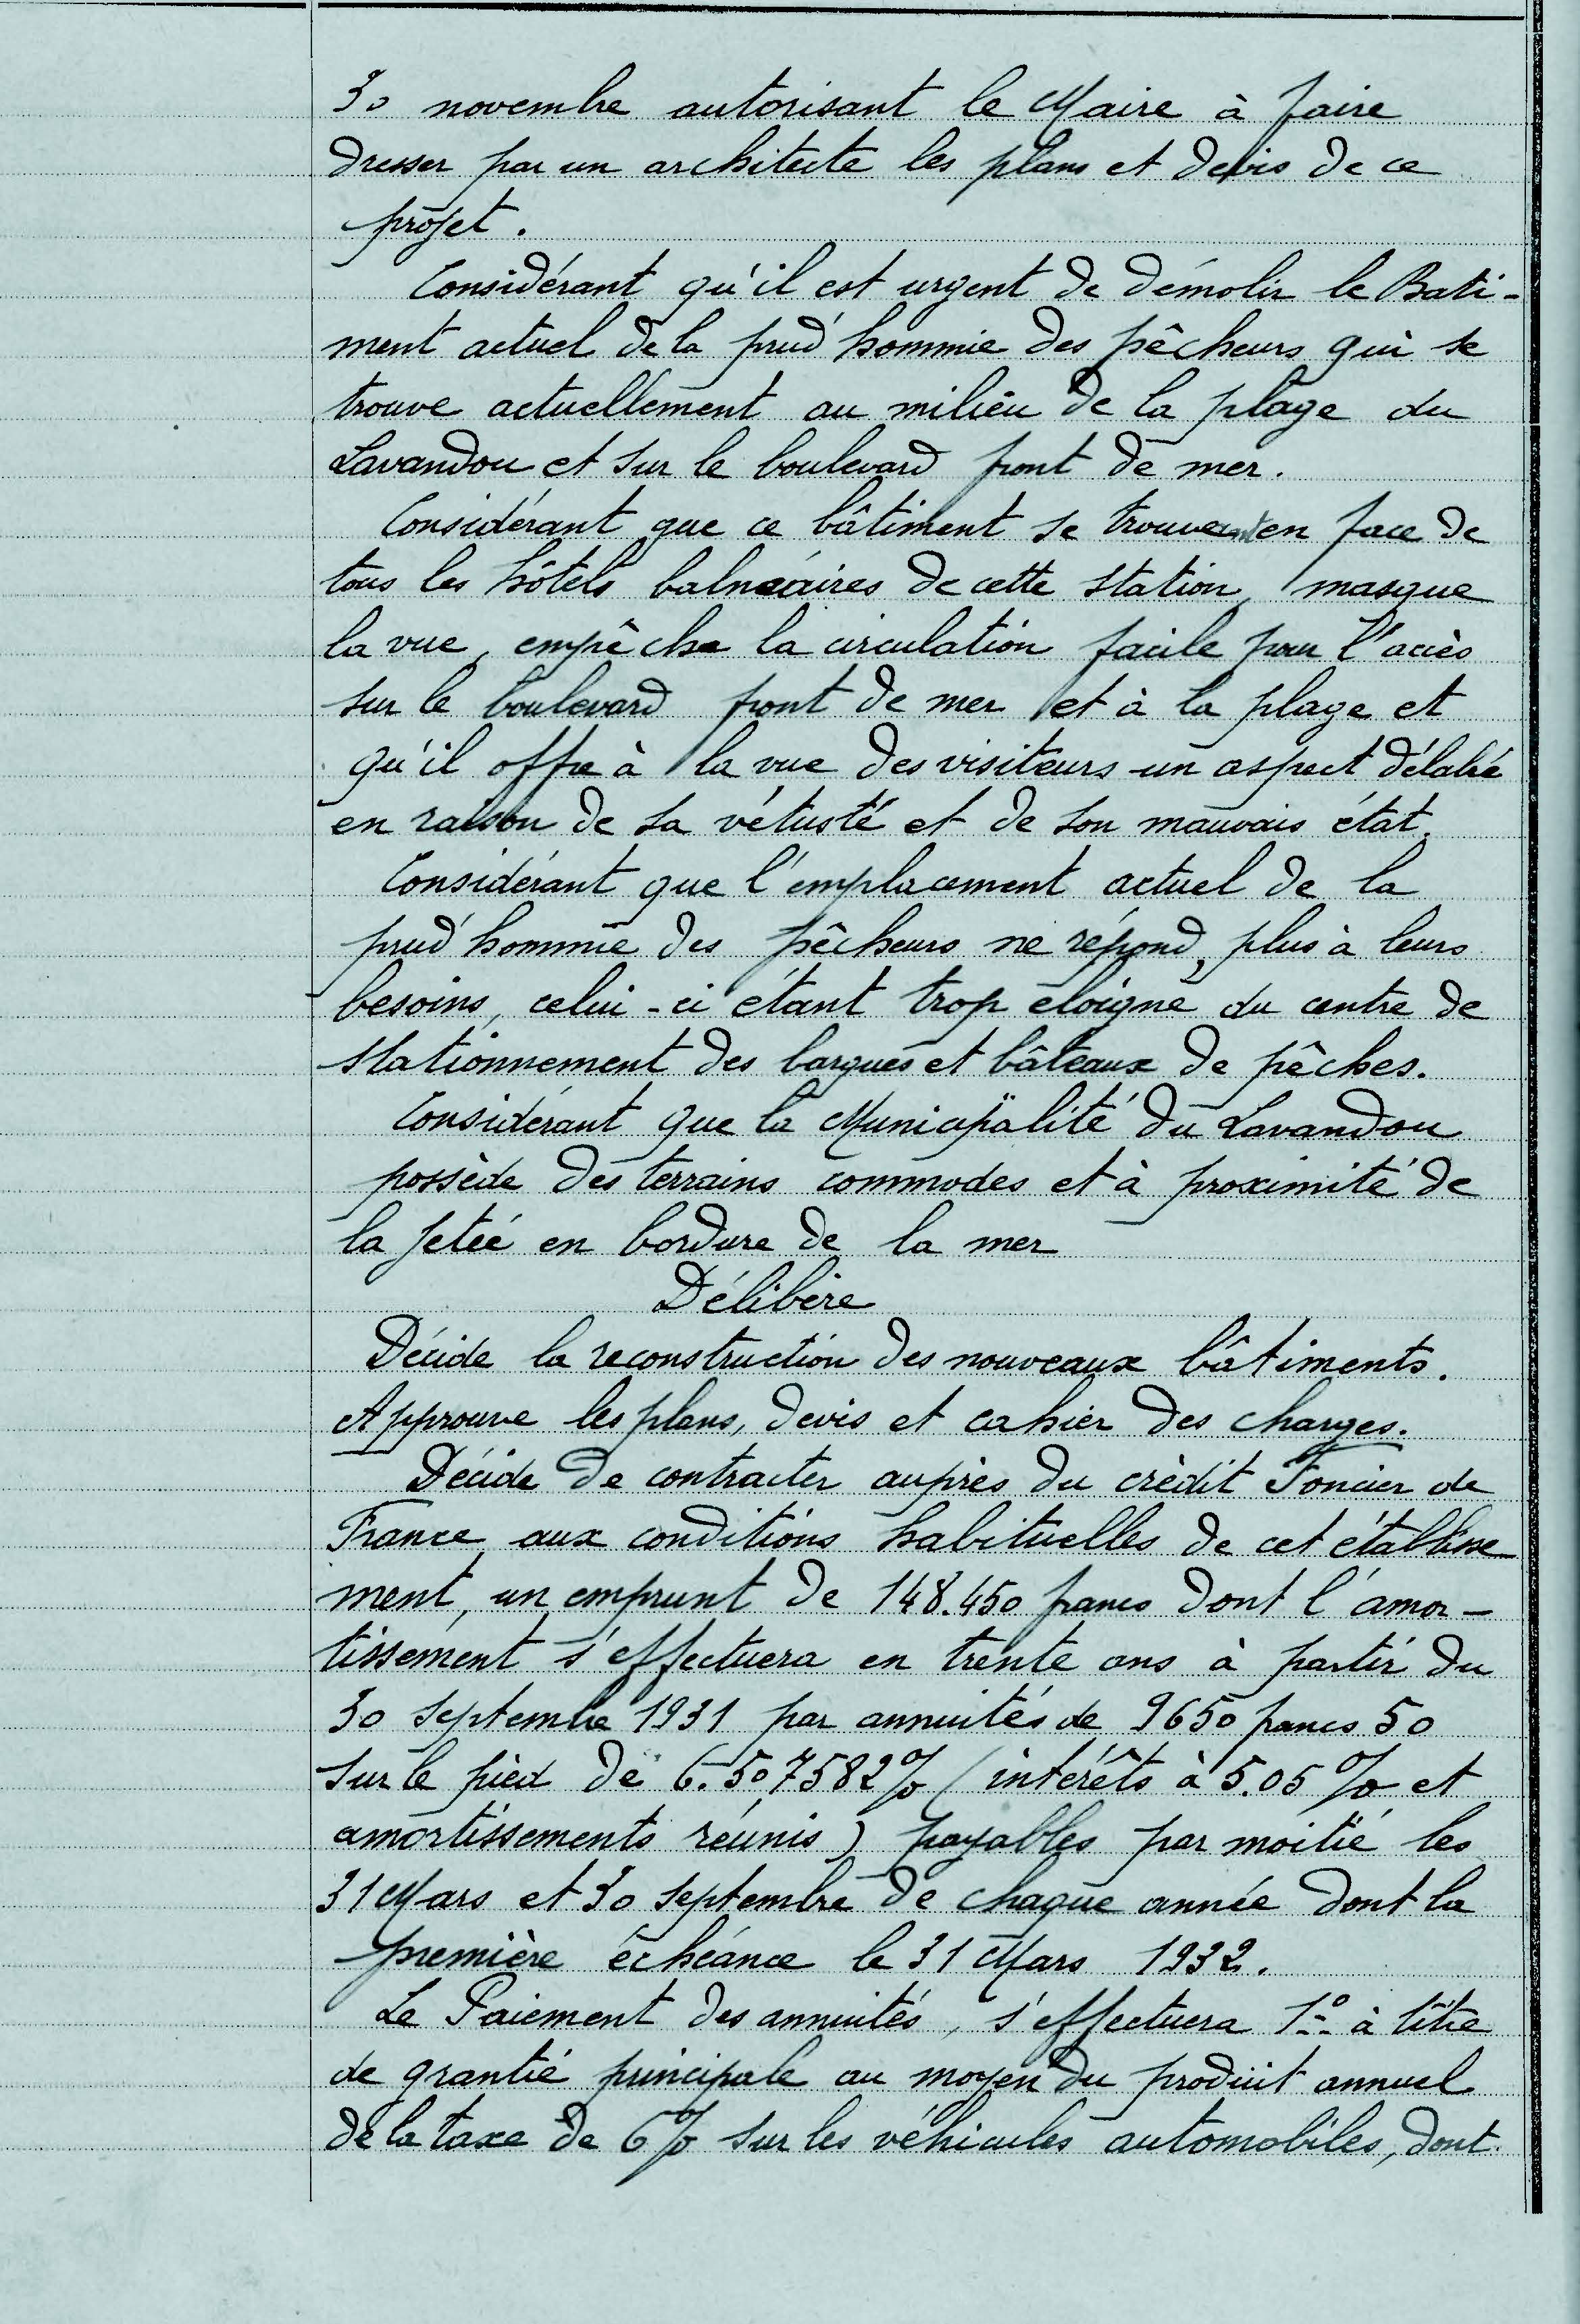 30 novembre autorisant le Maire à faire
dresser par un architecte les plans et devis de ce
projet.
Considérant qu'il est urgent de démolir le Bati-
ment actuel de la prud'hommie des pêcheurs qui se
trouve actuellement au milieu de la plage du
Lavandou et sur le boulevard front de mer.
Considérant que ce bâtiment se trouvant en face de
tous les hôtels balnéaires de cette station, masque
la vue, empêche la circulation facile pour l'accès
sur le boulevard front de mer et à la plage et
qu'il offre à la vue des visiteurs un aspect délabré
en raison de sa vétusté et de son mauvais état.
Considérant que l'emplacement actuel de la
prud'hommie des pêcheurs ne répond plus à leurs
besoins, celui-ci étant trop éloigné du centre de
stationnement des barques et bâteaux de pêches.
Considérant que la Municipalité du Lavandou
possède des terrains commodes et à proximité de
la jetée en bordure de la mer
Délibère
Décide la reconstruction des nouveaux bâtiments.
Approuve les plans, devis et cahier des charges.
Décide de contracter auprès du crèdit Foncier de
France aux conditions habituelles de cet établisse
ment, un emprunt de 148.450 francs dont l'amor-
tissement s'effectuera en trente ans à partir du
30 septembre 1931 par annuités de 9650 francs 50
sur le pied de 6.507582% (intérêts à 5.05% et
amortissements réunis) payables par moitié les
31 Mars et 30 septembre de chaque année dont la
première échéance le 31 Mars 1932.
Le Paiement des annuités, s'effectuera 1° à titre
de grantie principale au moyen du produit annuel
de la taxe de 6% sur les véhicules automobiles, dont